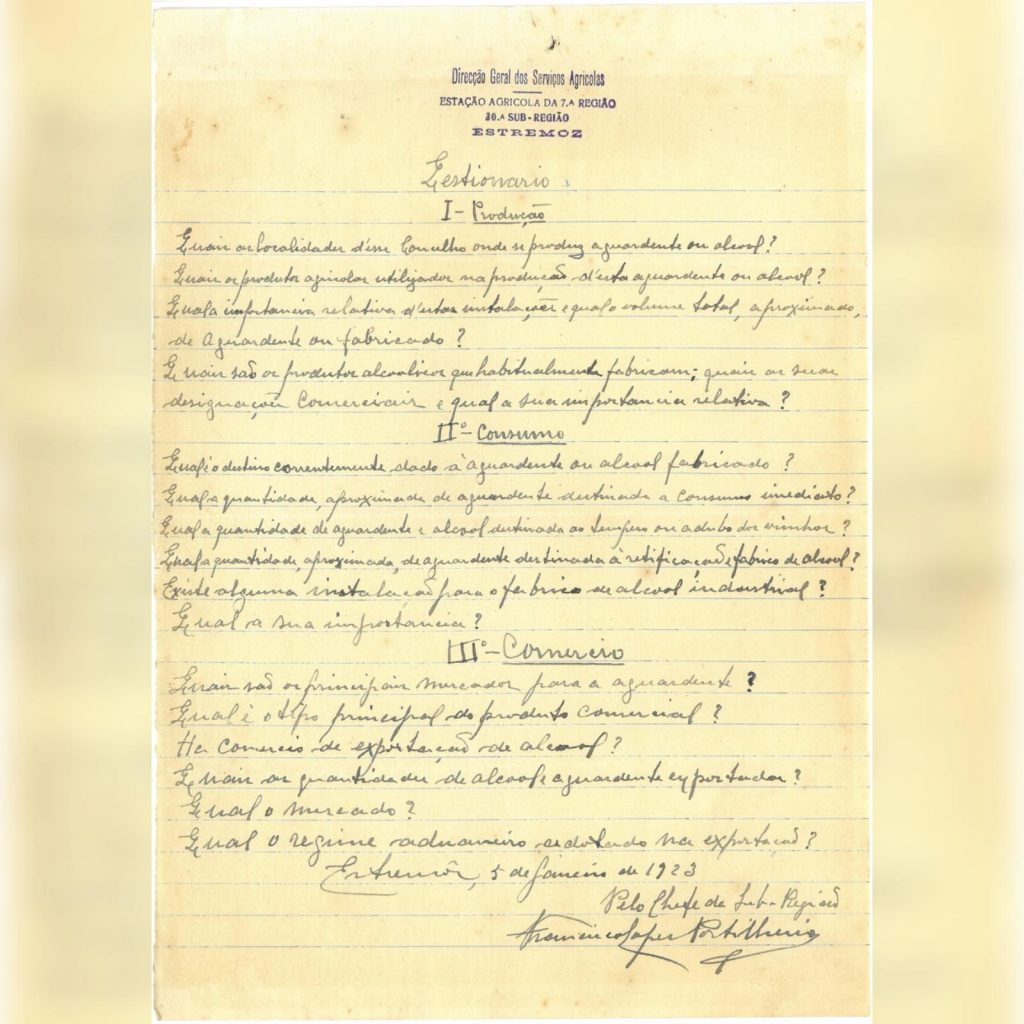 Direcção Geral dos Serviços Agricolas
ESTAÇÃO AGRICOLA DA 7.ª REGIÃO
30.ª SUB-REGIÃO
ESTREMOZ
Qestionario
I - Produção
Quais as localidades d'esse Concelho onde se produz aguardente ou alcool?
Quais os produtos agricolas utilizados na produção d'esta aguardente ou alcool?
Qual a importancia relativa d'estas instalações e qual o volume total, aproximado,
de Aguardente ou fabricado?
Quais são os produtos alcoolicos que habitualmente fabricam; quais as suas
designações Comerciais e qual a sua importancia relativa?
IIº - Consumo
Qual é o destino correntemente dado á aguardente ou alcool fabricado?
Qual a quantidade, aproximada de aguardente destinada a consumo imediato?
Qual a quantidade de aguardente e alcool destinada ao tempero ou adubo dos vinhos?
Qual a quantidade, aproximada, de aguardente destinada à retificação e fabrico de alcool?
Existe alguma instalação para o fabrico de alcool industrial?
Qual a sua importancia?
IIIº - Comercio
Quais são os principais mercados para a aguardente?
Qual é o tipo principal do produto comercial?
Ha comercio de exportação de alcool?
Quais as quantidades de alcool e aguardente exportadas?
Qual o mercado?
Qual o regime aduaneiro adotado na exportação?
Estremôz, 5 de Janeiro de 1923
Pelo Chefe da Sub-Região
Francisco Lopes